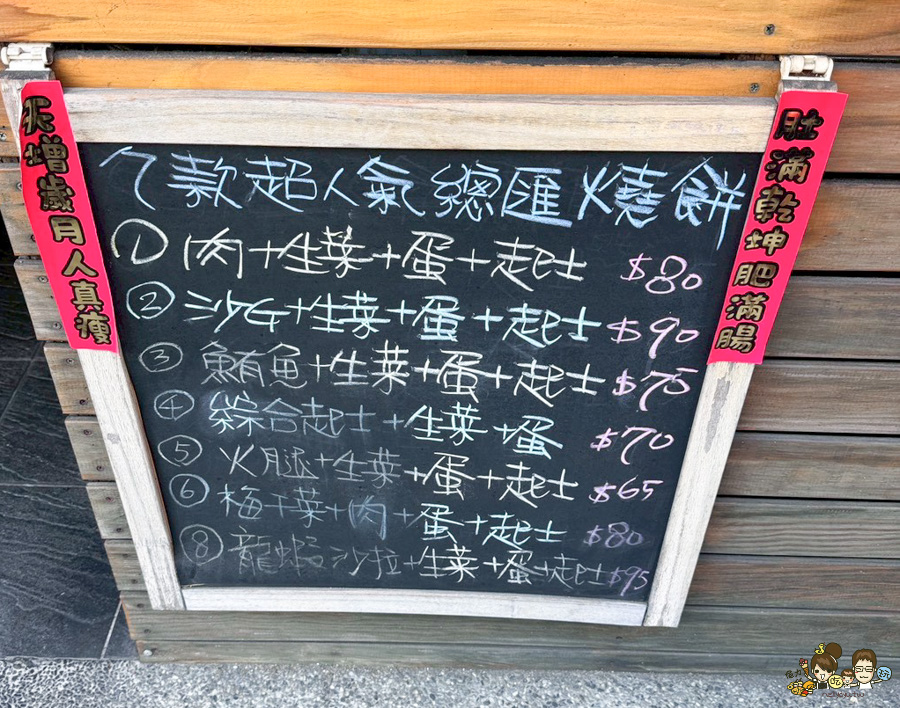 天增歲月人真瘦
肚滿乾坤肥滿腸
款超人氣總匯燒餅
① 肉+生菜+蛋+起士 $80
② 沙ㄍ+生菜+蛋+起士 $90
③ 鮪魚+生菜+蛋+起士 $75
④ 綜合起士+生菜+蛋 $70
⑤ 火腿+生菜+蛋+起士 $65
⑥ 梅干菜+肉+蛋+起士 $80
⑧ 龍蝦沙拉+生菜+蛋+起士 $95